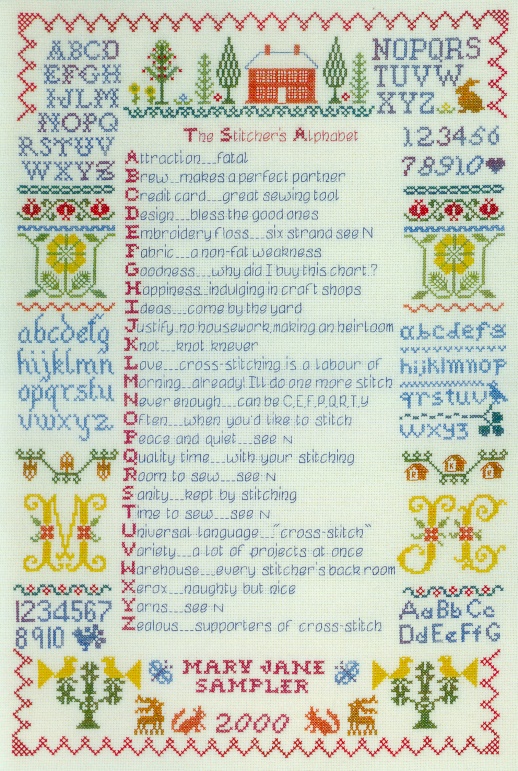 ABCD
EFGH
IJLM
NOPQ
RSTUV
WXYZ
NOPQRS
TUVW
XYZ
123456
78910
The Stitcher's Alphabet
Attraction....fatal
Brew...makes a perfect partner
Credit card....great sewing tool
Design....bless the good ones
Embroidery floss....six strand see N
Fabric....a non-fat weakness
Goodness....why did I buy this chart?
Happiness..indulging in craft shops
Ideas....come by the yard
Justify..no housework,making an heirloom
Knot....knot knever
Love....cross-stitching is a labour of
Morning..already! I'll do one more stitch
Never enough....can be C,E,F,P,Q,R,T,Y
Often....when you'd like to stitch
Peace and quiet....see N
Quality time....with your stitching
Room to sew....see N
Sanity....kept by stitching
Time to sew....see N
Universal language...."cross-stitch"
Variety....a lot of projects at once
Warehouse....every stitcher's back room
Xerox....naughty but nice
Yarns....see N
Zealous....supporters of cross-stitch
abcdefg
hijklmn
opqrstu
vwxyz
abcdefg
hijklmnop
qrstuv
wxyz
M
1234567
8910
AaBbCc
DdEeFfG
MARY JANE
SAMPLER
2000